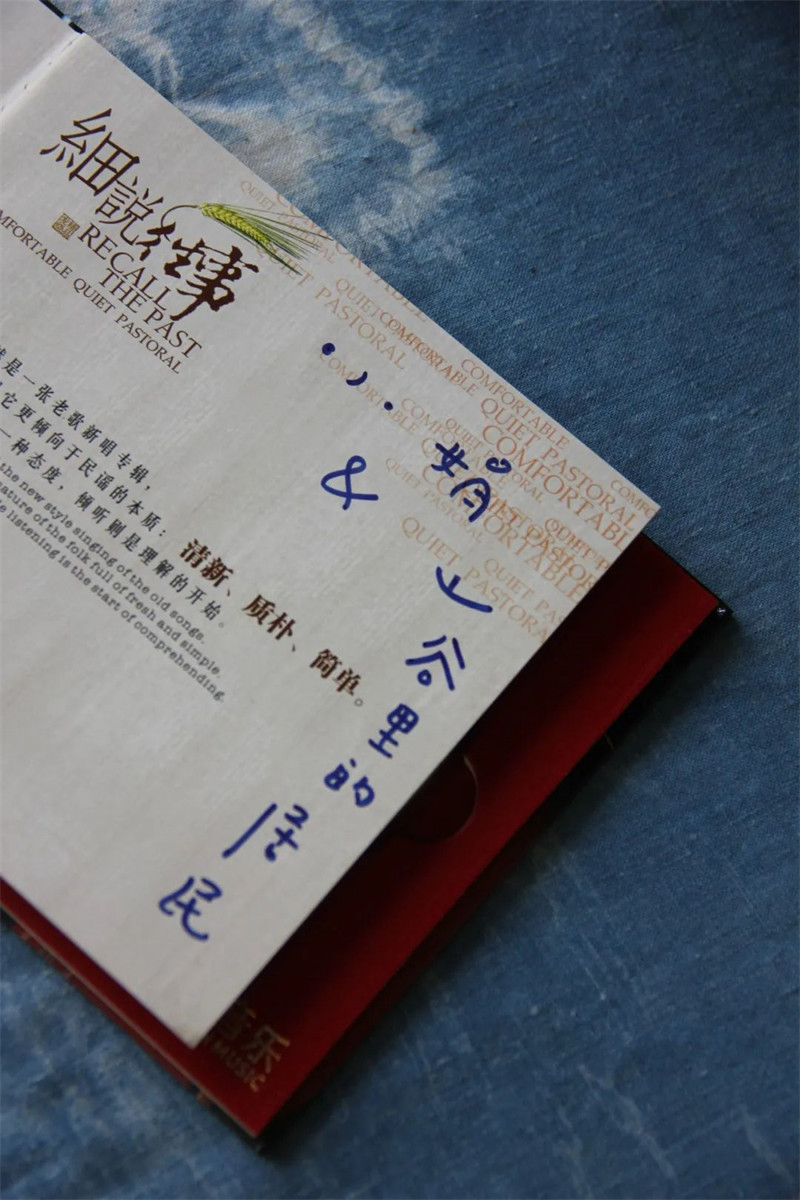 細說往事
RECALL
THE PAST
COMFORTABLE QUIET PASTORAL
是一张老歌新唱专辑，
它更倾向于民谣的本质：
清新、质朴、简单。
一种态度，倾听则是理解的开始。
the new style singing of the old songs.
nature of the folk full of fresh and simple.
listening is the start of comprehending.
小娟
&
山谷里的
居民
QUIET PASTORAL
COMFORTABLE
QUIET PASTORAL
COMFORTABLE
QUIET PASTORAL
音乐
MUSIC